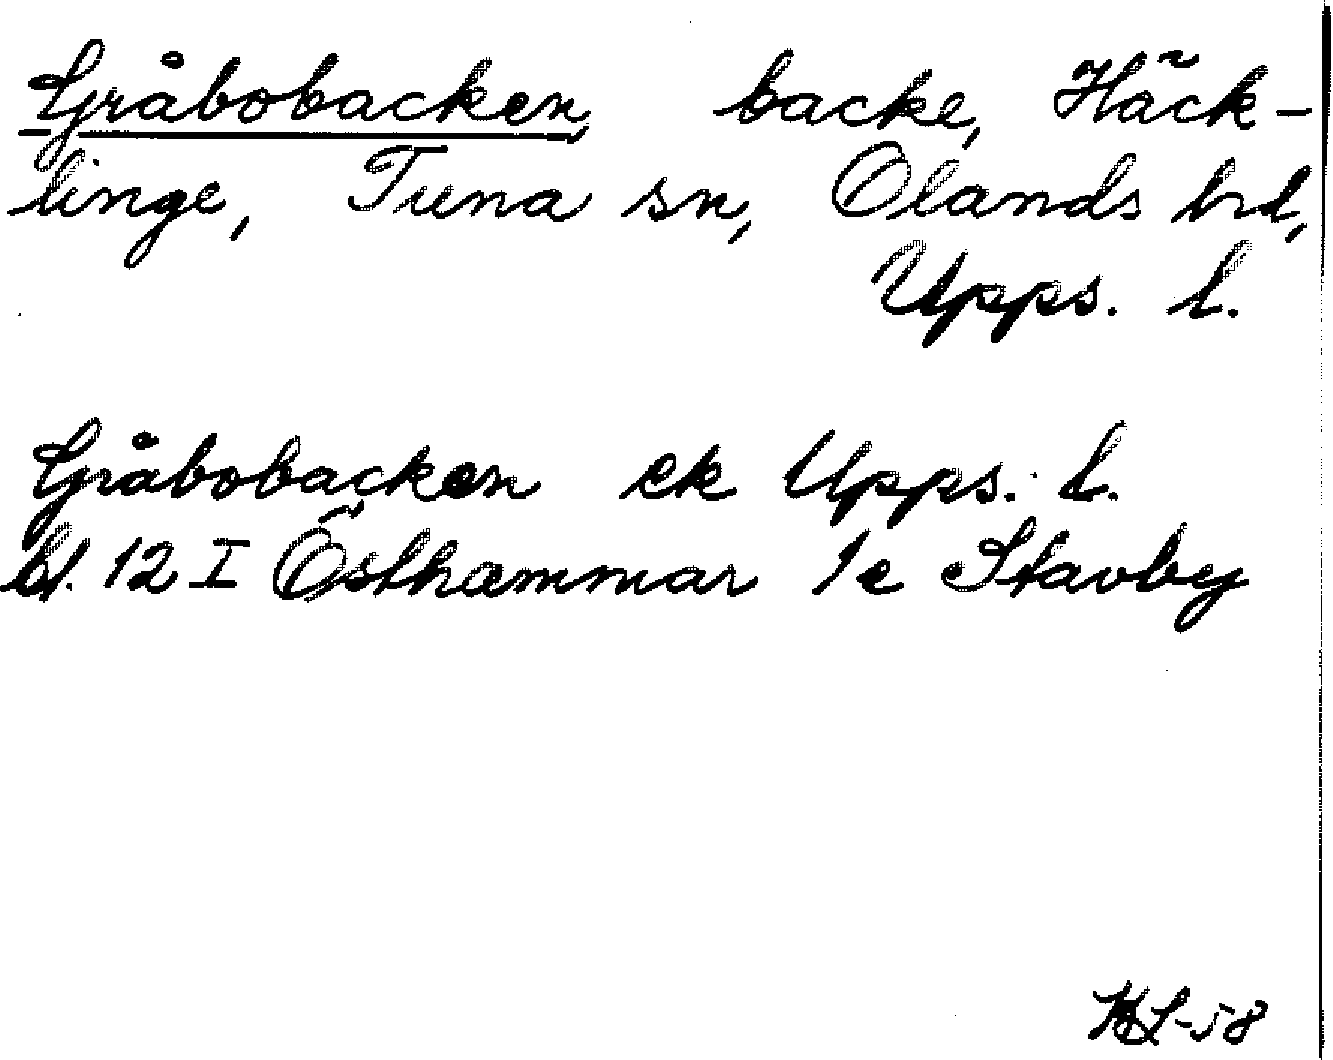 Gråbobacken, backe, Häck-
linge, Tuna sn, Olands hd,
Upps. l.
Gråbobacken ek Upps. l.
bl. 12 I Östhammar 1e Stavby
-58